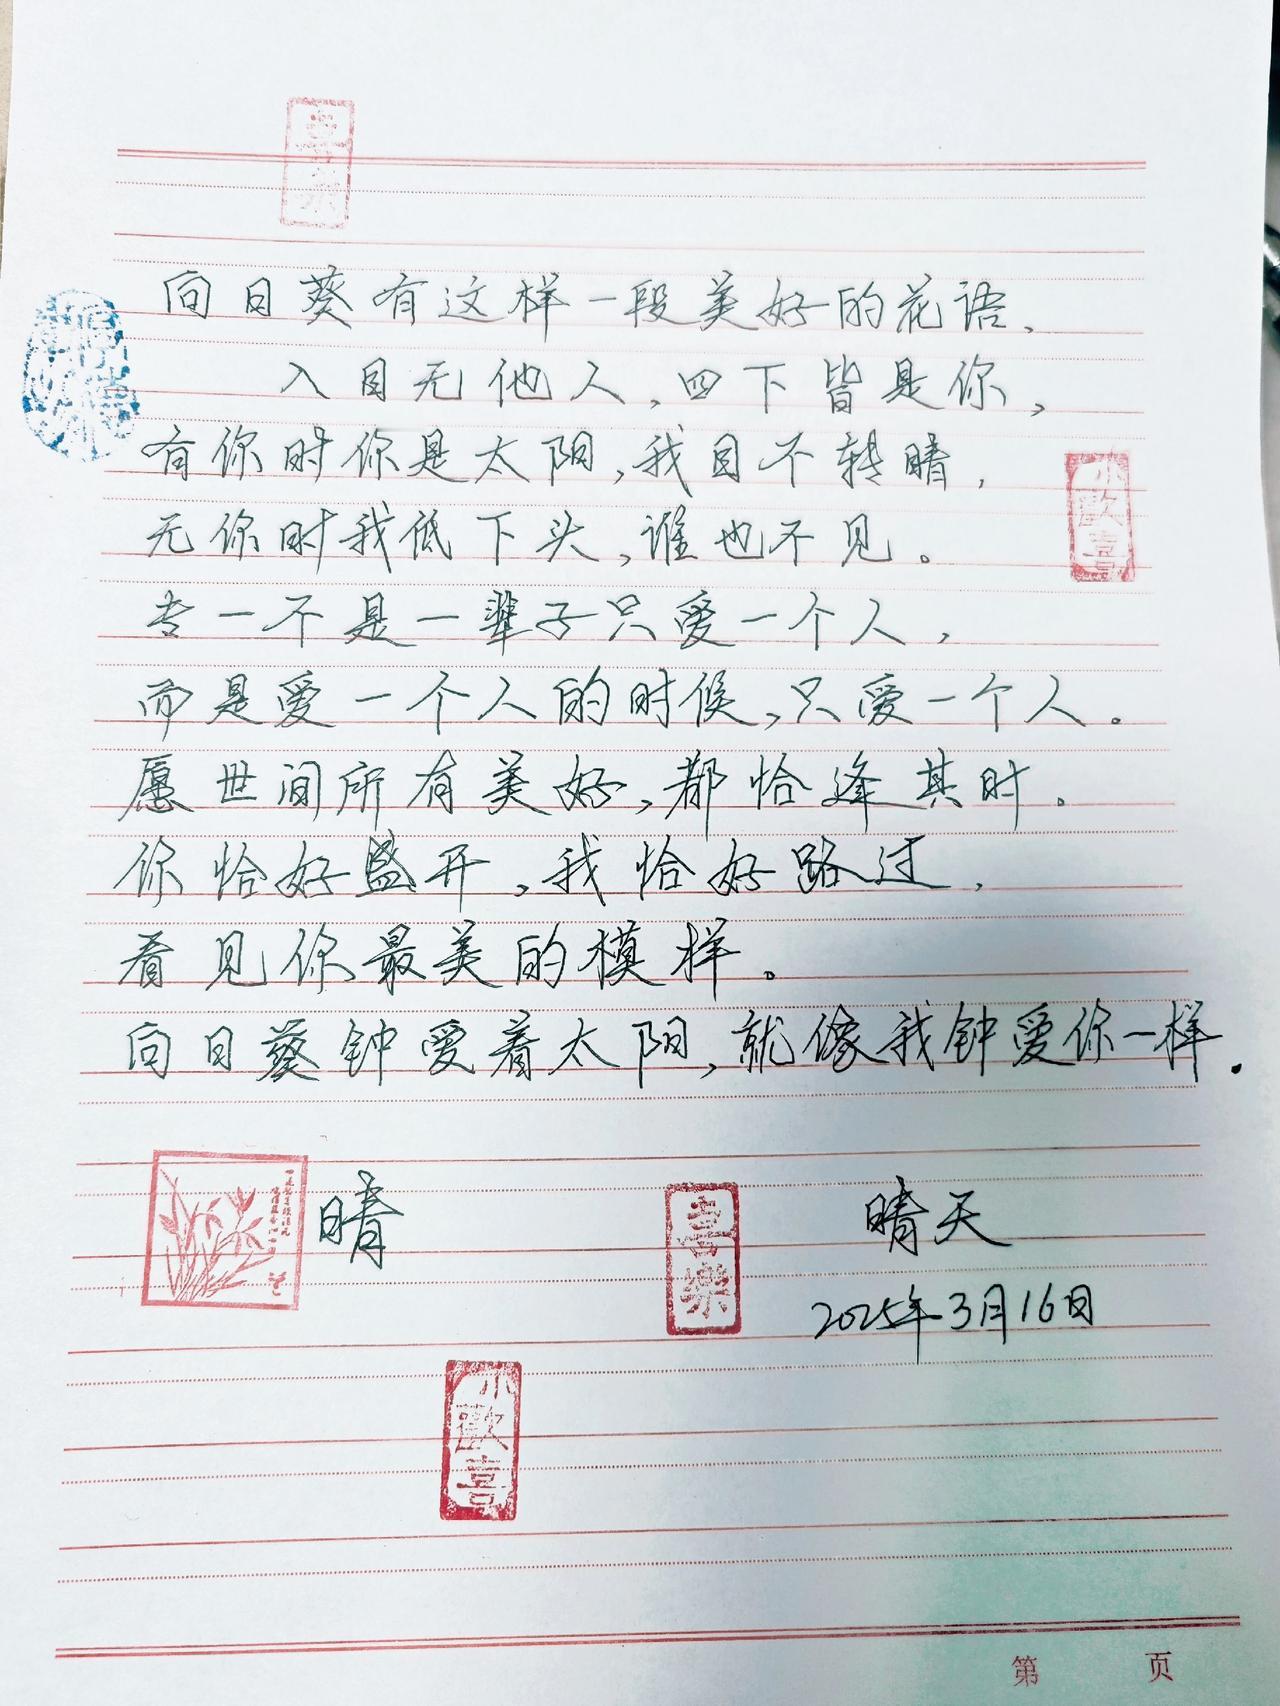 喜樂
向日葵有这样一段美好的花语,
入目无他人,四下皆是你,
有你时你是太阳,我目不转睛,
无你时我低下头,谁也不见。
小歡喜
专一不是一辈子只爱一个人,
而是爱一个人的时候,只爱一个人。
愿世间所有美好,都恰逢其时。
你恰好盛开,我恰好路过,
看见你最美的模样。
向日葵钟爱着太阳,就像我钟爱你一样.
晴
喜樂
晴天
2025年3月16日
小歡喜
第 页